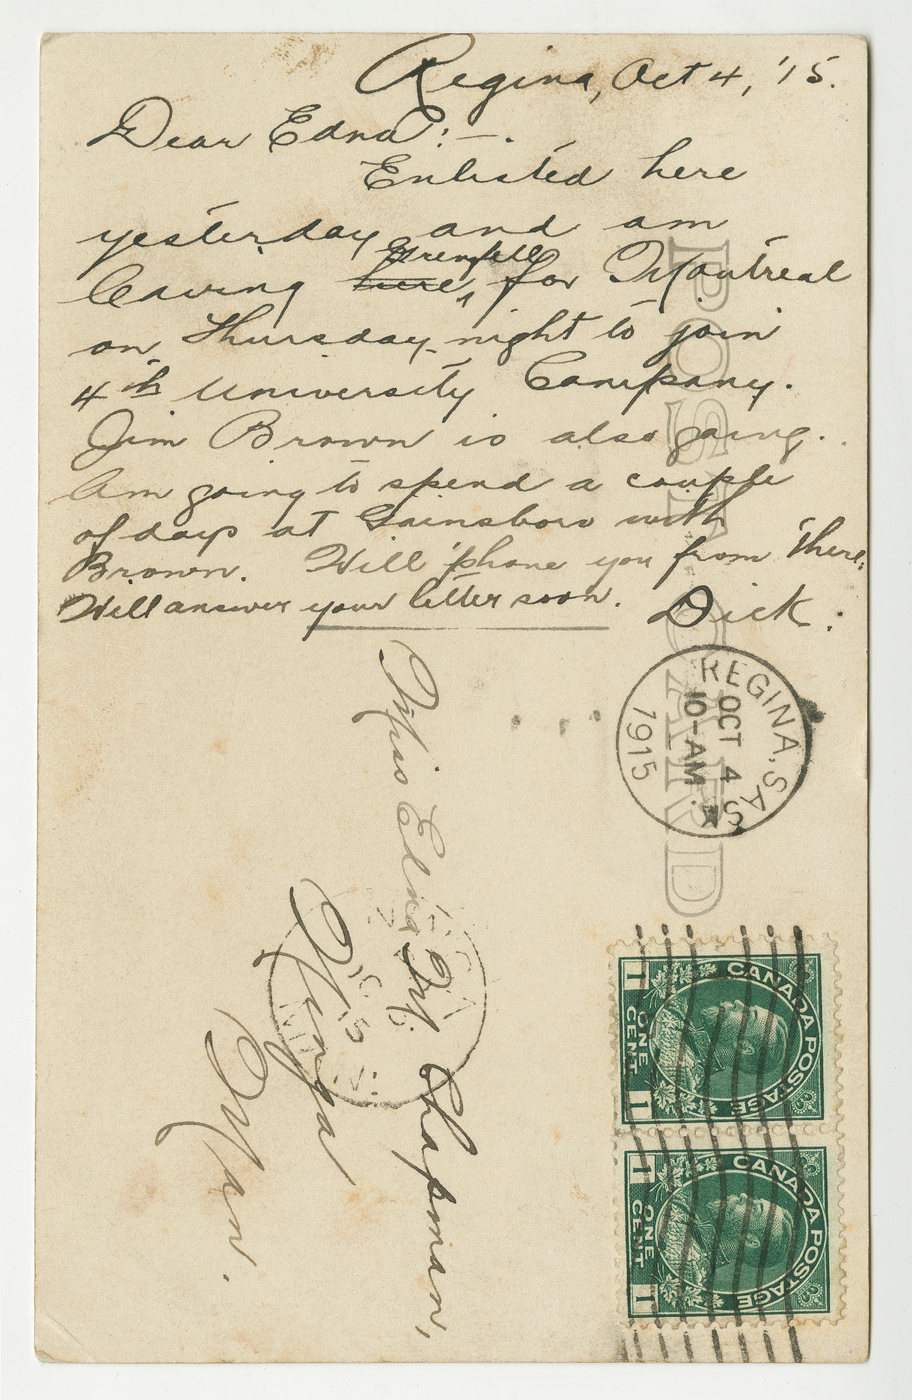 Regina, Oct 4, '15.
Dear Edna:—.
Enlisted here
yesterday and am
Grenfell
leaving here, for Montreal
on Thursday night to join
4th University Company.
Jim Brown is also going.
Am going to spend a couple
of days at Gainsboro with
Brown. Will 'phone you from there.
Will answer your letter soon. Dick.
POST CARD
REGINA, SASK.
OCT 4
10-AM
1915
Miss Edna M. Chapman,
Man.
CANADA POSTAGE
1 ONE CENT 1
CANADA POSTAGE
1 ONE CENT 1